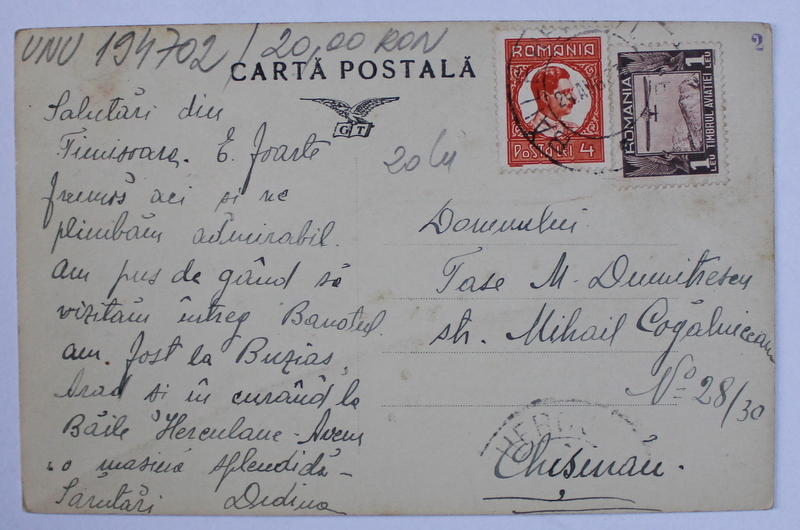 VNU 194702 / 20,00 RON
CARTĂ POSTALĂ
GT
2
ROMANIA
POSTA LEI 4
ROMANIA
TIMBRUL AVIATIEI
1 LEU
1 LEU
20 lei
Salutări din
Timisoara. E foarte
frumos aci si ne
plimbăm admirabil.
Am pus de gând să
vizităm întreg Banatul.
am fost la Buzias,
Arad si în curând la
Băile Herculane - Avem
o masină splendidă -
Sărutări Didina
Domnului
Tase M. Dumitrescu
str. Mihail Cogălniceanu
No 28/30
Chisinău.